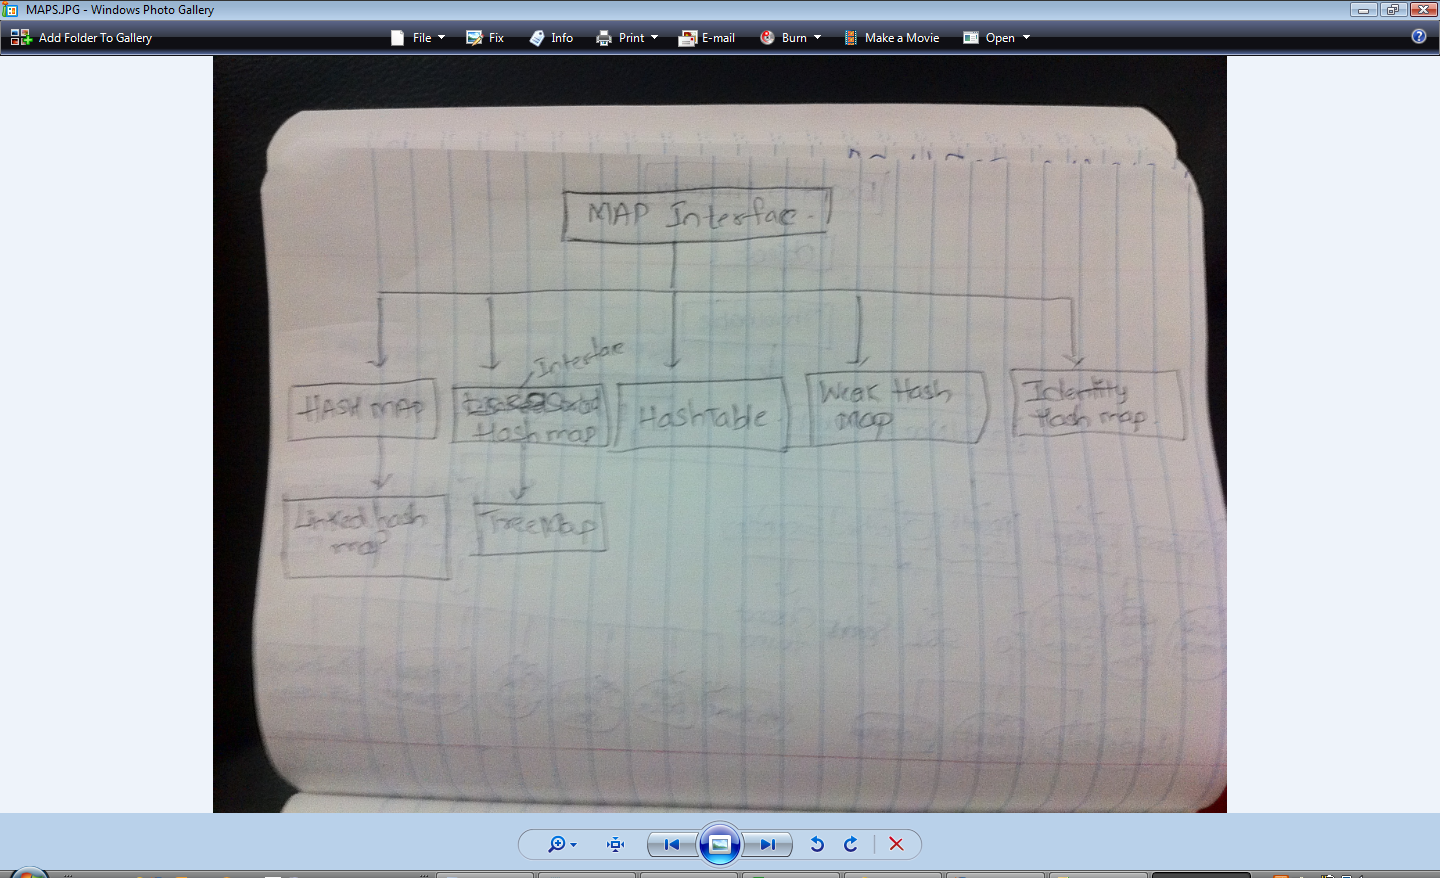 MAPS.JPG - Windows Photo Gallery
Add Folder To Gallery
File
Fix
Info
Print
E-mail
Burn
Make a Movie
Open
MAP Interface
Interfae
HASH MAP
Sorted
Hash map
HashTable
Weak Hash
Map
Identity
Hash map
Linked hash
map
TreeMap